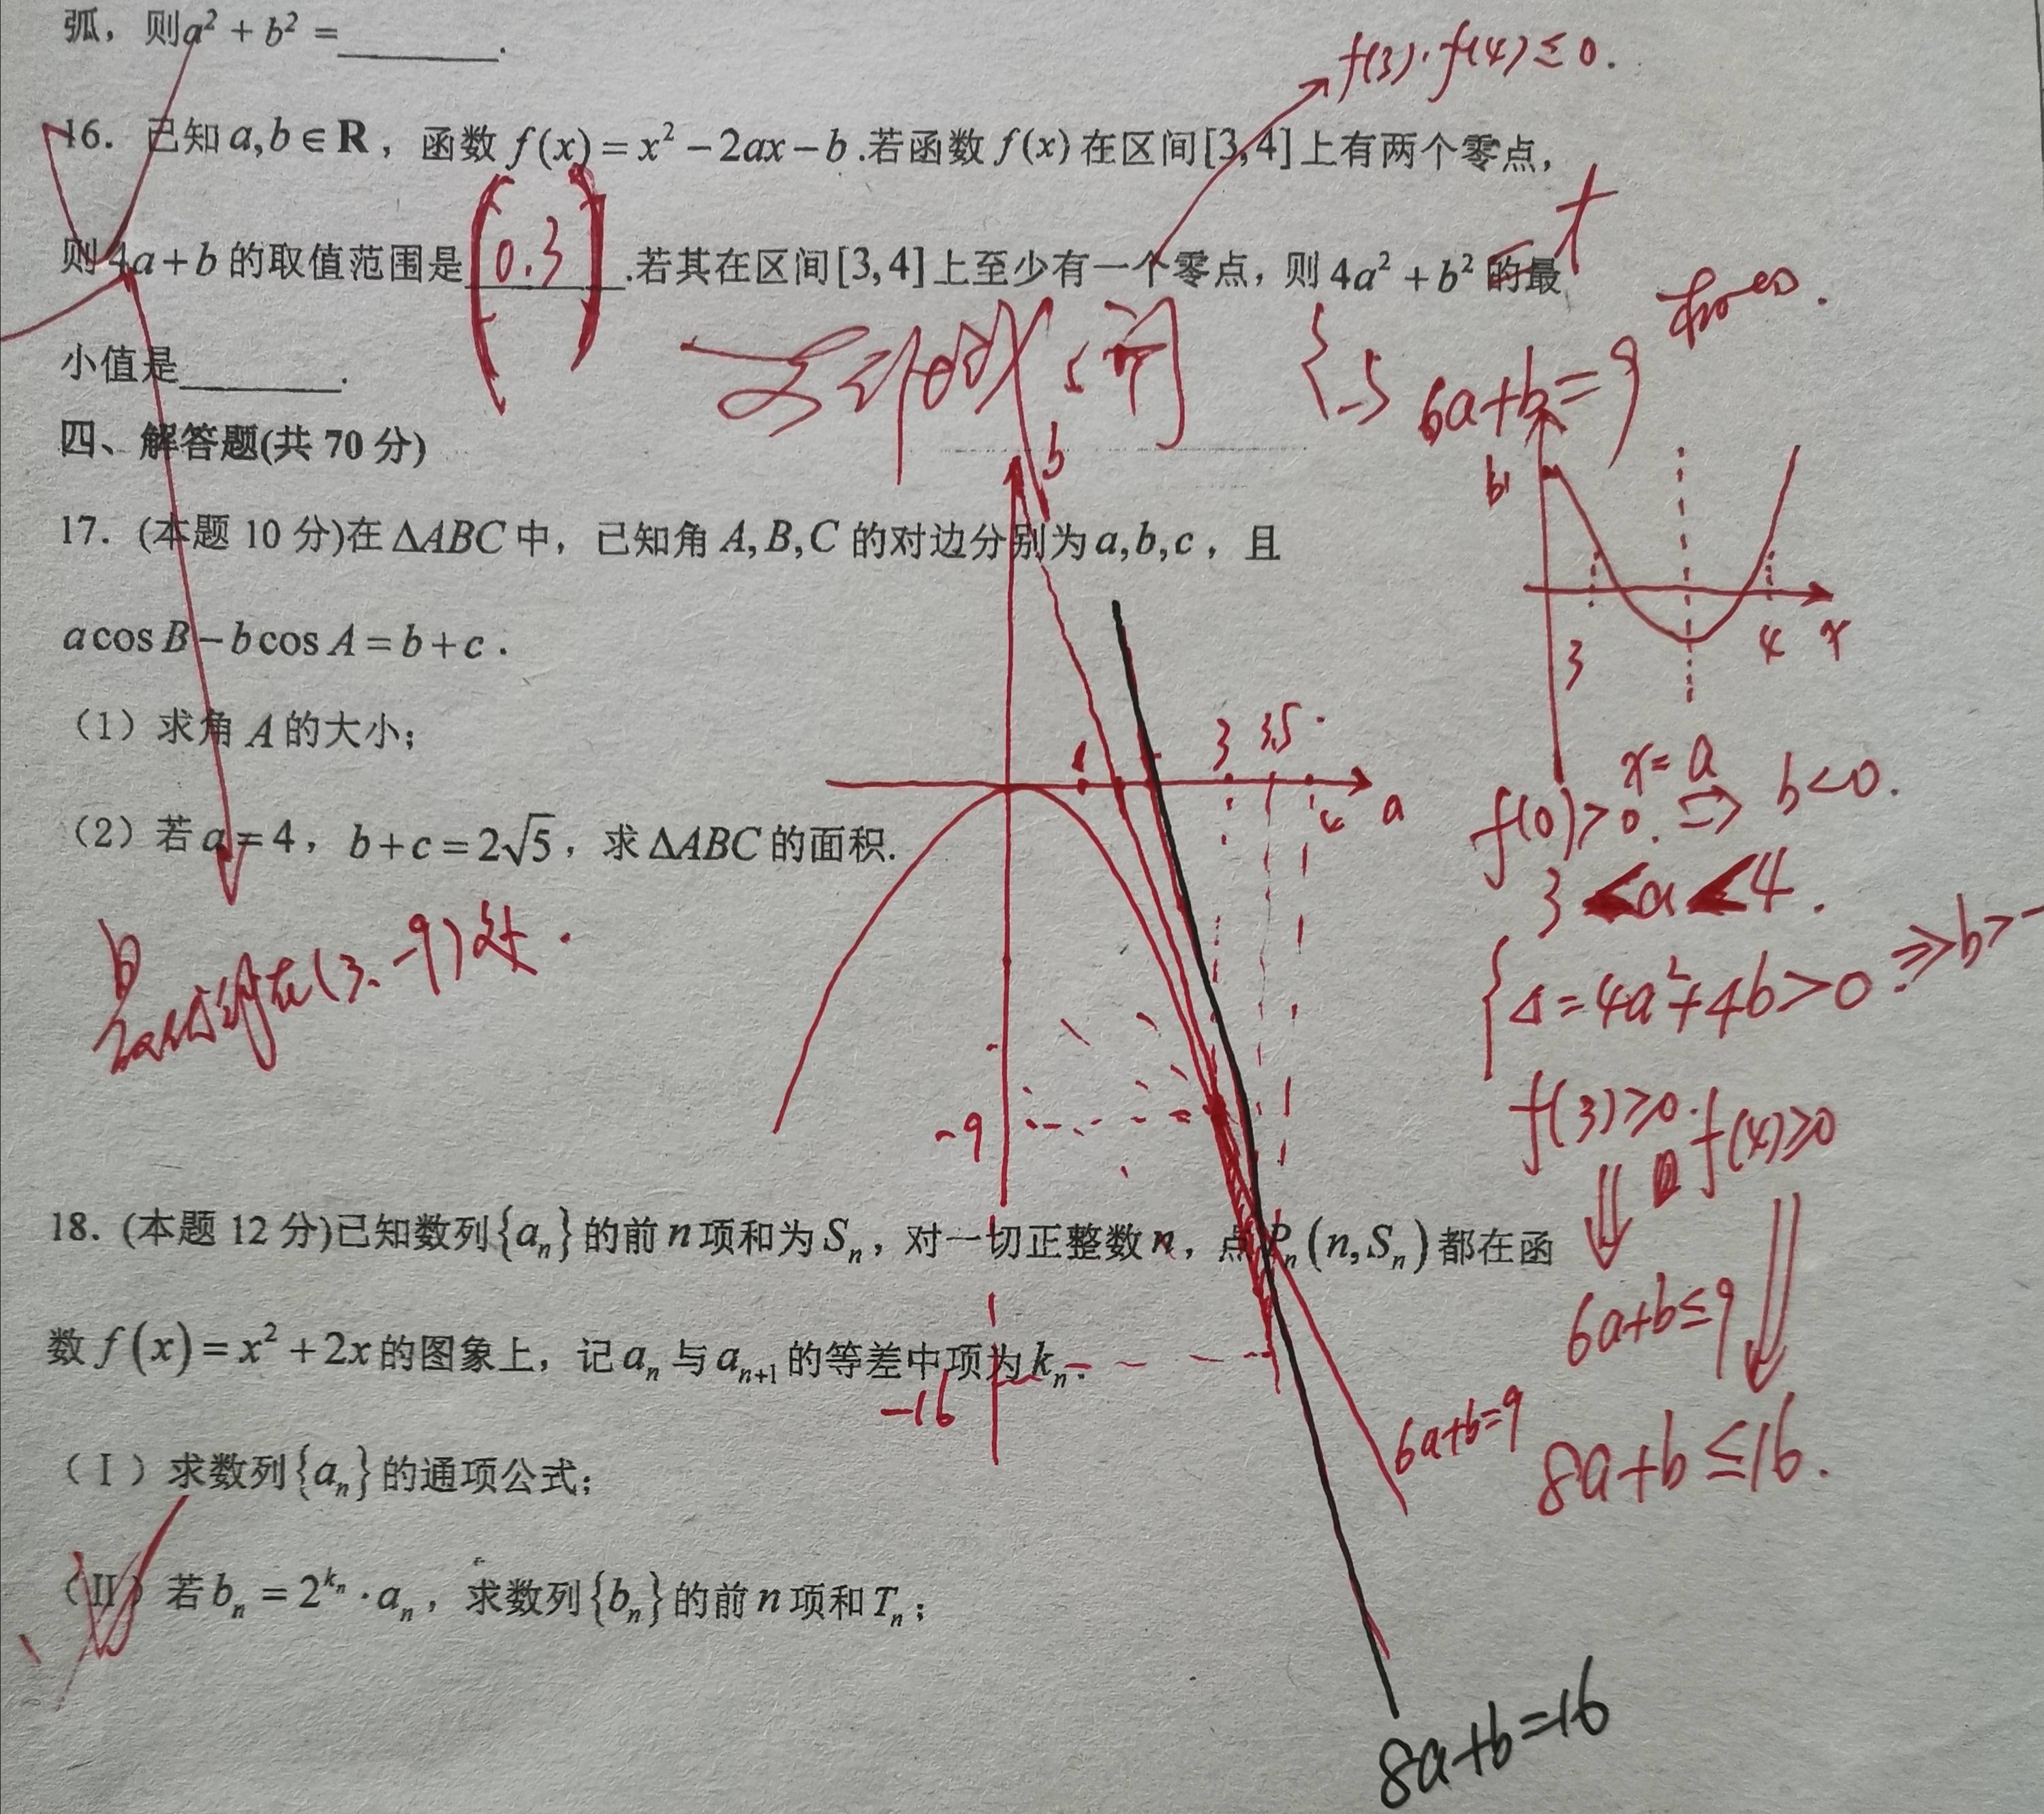 弧，则a² + b² =________.
f(3)·f(4)≤0.
16. 已知 a,b∈R，函数 f(x)=x²－2ax－b.若函数 f(x) 在区间[3,4]上有两个零点，
则 4a+b 的取值范围是 (0.3) .若其在区间[3,4]上至少有一个零点，则 4a²+b² 的最
小值是________.
6a+b=9
四、解答题(共 70 分)
b
17. (本题 10 分)在 ΔABC 中，已知角 A,B,C 的对边分别为 a,b,c，且
a cos B－b cos A=b+c.
3 4 x
（1）求角 A 的大小；
3 3.5 4 a
x=a
f(0)>0. ⇒ b<0.
（2）若 a=4，b+c=2√5，求 ΔABC 的面积.
3<a<4.
在(3、-9)处.
Δ=4a²+4b>0 ⇒b>-
-9
f(3)≥0. f(4)≥0
18. (本题 12 分)已知数列{aₙ}的前 n 项和为 Sₙ，对一切正整数 n，点 Pₙ(n,Sₙ) 都在函
6a+b≤9
数 f(x)=x²+2x 的图象上，记 aₙ 与 aₙ₊₁ 的等差中项为 kₙ.
-16
6a+b=9
8a+b≤16.
（Ⅰ）求数列{aₙ}的通项公式；
（Ⅱ）若 bₙ=2^{kₙ}·aₙ，求数列{bₙ}的前 n 项和 Tₙ；
8a+b=16